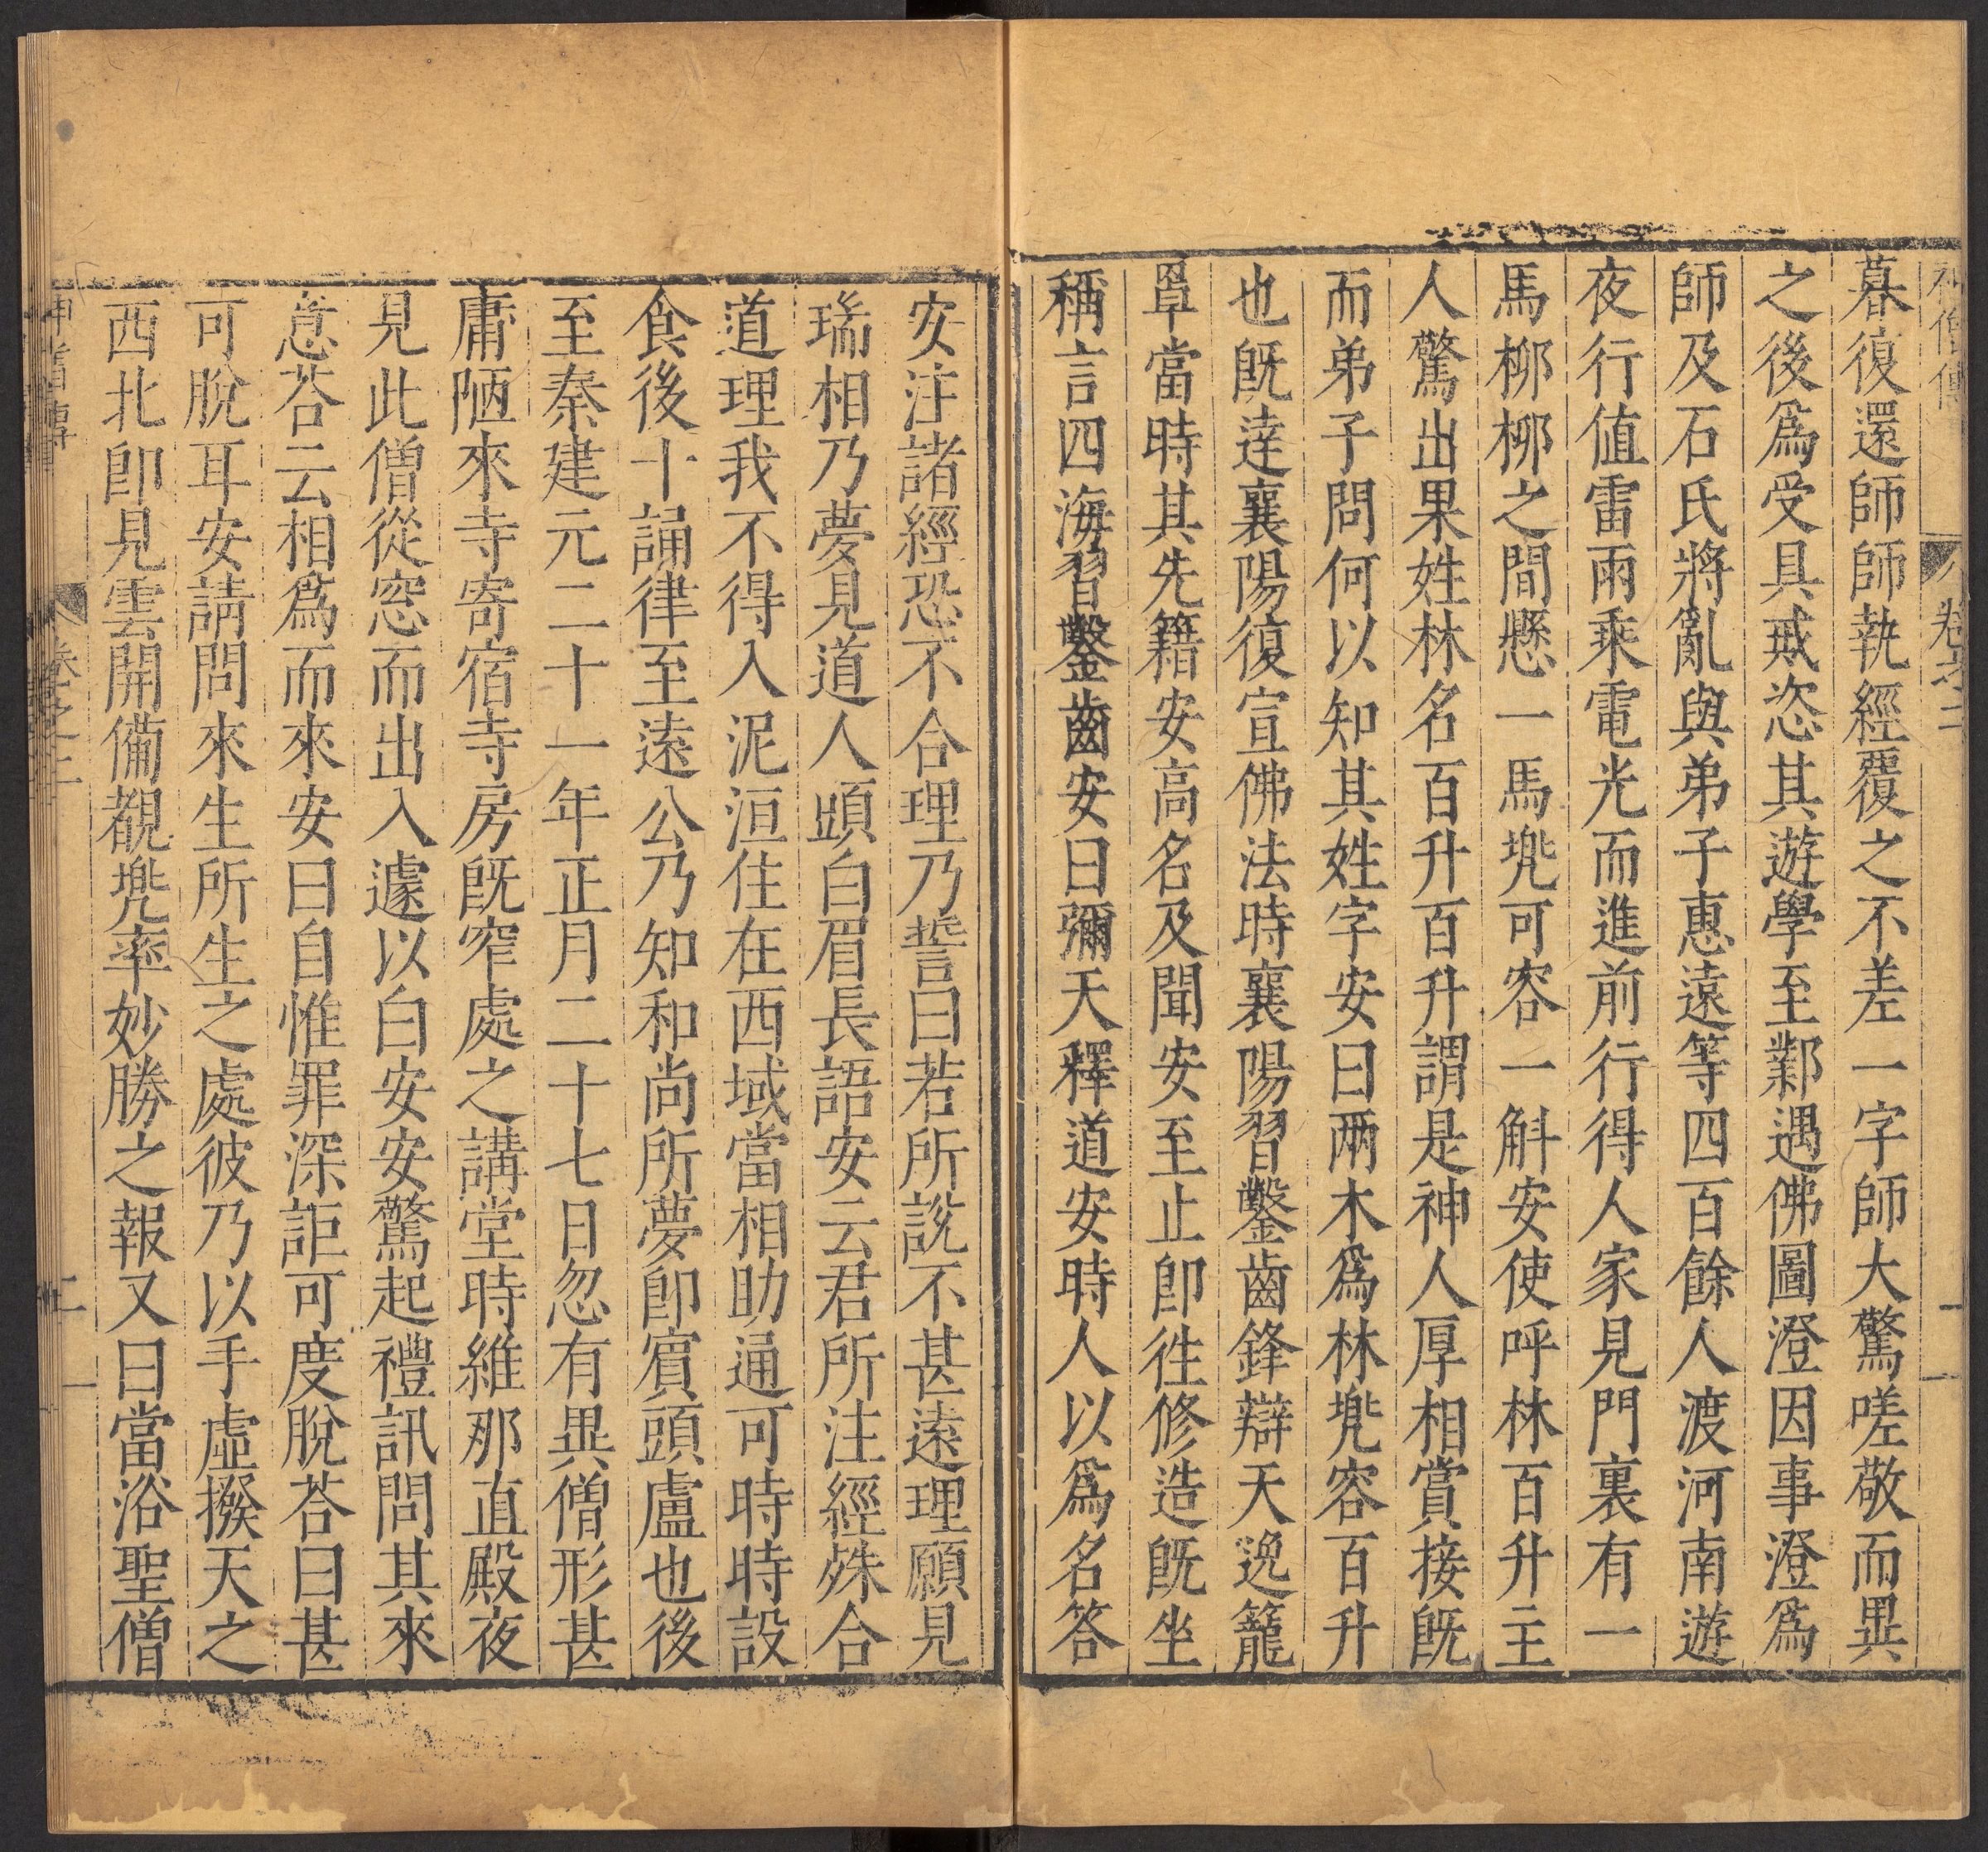 神僧傳 卷之二 一
暮復還師師執經覆之不差一字師大驚嗟敬而異
之後爲受具戒恣其遊學至鄴遇佛圖澄因事澄爲
師及石氏將亂與弟子惠遠等四百餘人渡河南遊
夜行值雷雨乘電光而進前行得人家見門裏有一
馬柳柳之間懸一馬兠可容一斛安使呼林百升主
人驚出果姓林名百升百升謂是神人厚相賞接既
而弟子問何以知其姓字安曰兩木爲林兠容百升
也既達襄陽復宣佛法時襄陽習鑿齒鋒辯天逸籠
罩當時其先籍安高名及聞安至止即徃修造既坐
稱言四海習鑿齒安曰彌天釋道安時人以爲名答
安注諸經恐不合理乃誓曰若所說不甚遠理願見
瑞相乃夢見道人頭白眉長語安云君所注經殊合
道理我不得入泥洹住在西域當相助通可時時設
食後十誦律至遠公乃知和尚所夢即賓頭盧也後
至秦建元二十一年正月二十七日忽有異僧形甚
庸陋來寺寄宿寺房既窄處之講堂時維那直殿夜
見此僧從窓而出入遽以白安安驚起禮訊問其來
意荅云相爲而來安曰自惟罪深詎可度脫荅曰甚
可脫耳安請問來生所生之處彼乃以手虛撥天之
西北即見雲開備覩兠率妙勝之報又曰當浴聖僧
神僧傳 卷之二 二